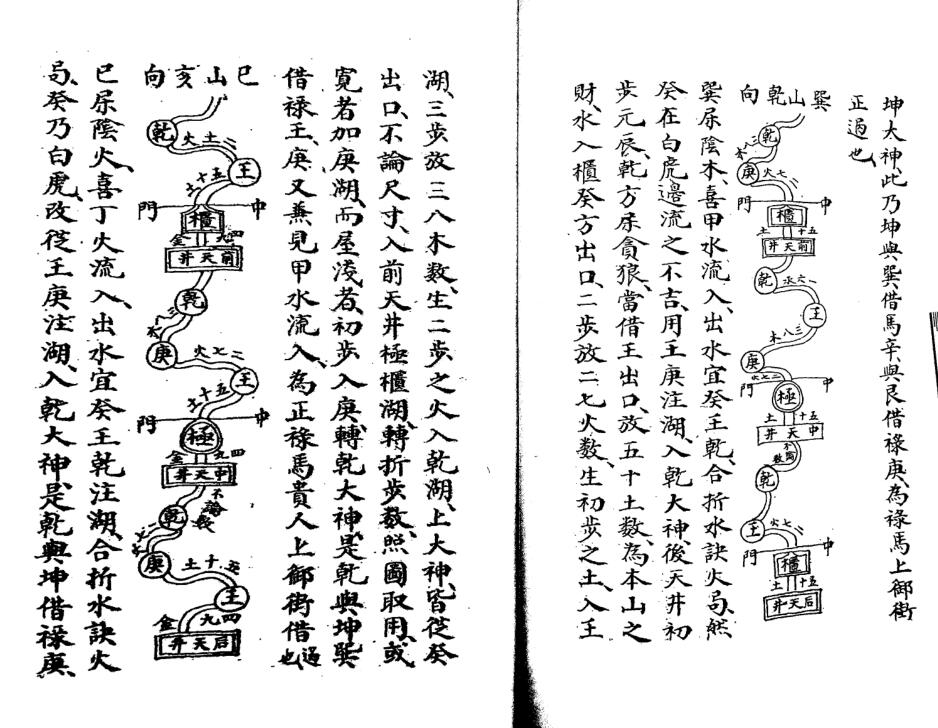 坤太神、此乃坤與巽借馬、辛與艮借祿、庚為祿馬上御街
正過也、
巽山乾向
乾
三八木
庚
二七火
中 門
櫃
五十土
前天井
乾
一六水
壬
三八木
庚
二七火
中 門
極
五十土
中天井
不論數
乾
壬
二七火
中 門
櫃
五十土
后天井
巽屬陰木、喜甲水流入、出水宜癸壬乾、合折水訣火局、然
癸在白虎邊流之不吉、用壬庚注湖、入乾大神、後天井初
步元辰、乾方屬貪狼、當借壬出口、放五十土數、為本山之
財、水入櫃癸方出口、二步放二七火数、生初步之土、入壬
湖、三步放三八木数、生二步之火、入乾湖、上大神、皆從癸
出口、不論尺寸、入前天井極櫃湖、轉折步数、照圖取用、或
寬者加庚湖、而屋淺者、初步入庚、轉乾大神、是乾與坤巽
借祿、壬、庚又兼見甲水流入、為正祿馬貴人上御街借過也
巳山亥向
乾
二土火
壬
五十土
中 門
櫃
四九金
前天井
乾
三八木
庚
二七火
壬
五十土
中 門
極
四九金
中天井
不論数
乾
庚
五十土
壬
四九金
后天井
巳屬陰火、喜丁火流入、出水宜癸壬乾注湖、合折水訣火
局、癸乃白虎、改從壬庚注湖、入乾大神、是乾與坤借祿庚、